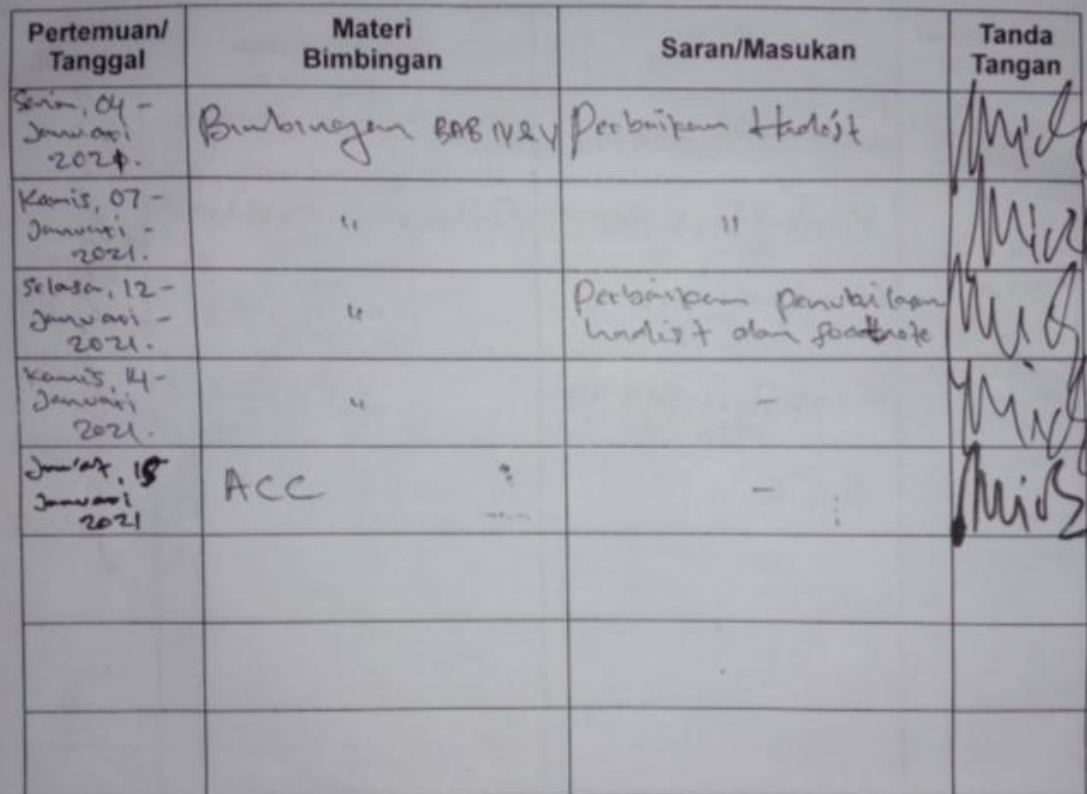 Pertemuan/
Tanggal
Materi
Bimbingan
Saran/Masukan
Tanda
Tangan
Senin, 04 -
Januari
2021.
Bimbingan BAB IV & V
Perbaikan Hadist
Kamis, 07 -
Januari -
2021.
"
"
Selasa, 12 -
Januari -
2021.
"
Perbaikan penulisan
hadist dan footnote
Kamis, 14 -
Januari
2021.
"
-
Jum'at, 15
Januari
2021
ACC
-